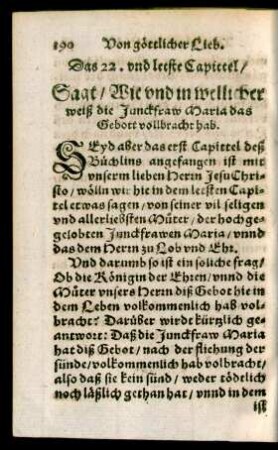 190 Von göttlicher Lieb.
Das 22. vnd letste Capittel /
Sagt / Wie vnd in wellicher
weiß die Junckfraw Maria das
Gebott vollbracht hab.
SEyd aber das erst Capittel deß
Büchlins angefangen ist mit
vnserm lieben Herrn Jesu Chri-
sto / wölln wir hie in dem letsten Capi-
tel etwas sagen / von seiner vil seligen
vnd allerliebsten Mûter / der hochge-
gelobten Junckfrawen Maria / vnnd
das dem Herrn zu Lob vnd Ehr.
Vnd darumb so ist ein soliche frag /
Ob die Königin der Ehren / vnnd die
Mûter vnsers Herrn diß Gebot hie in
dem Leben volkommenlich hab vol-
bracht? Darüber wirdt kürtzlich ge-
antwort: Daß die Junckfraw Maria
hat diß Gebot / nach der fliehung der
sünde / volkommenlich hab volbracht /
also daß sie kein sünd / weder tödtlich
noch läßlich gethan hat / vnnd in dem
ist